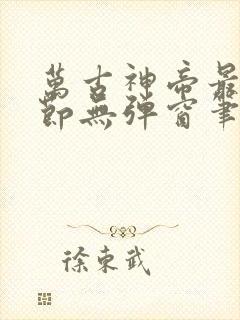 萬古神帝最
節無彈窗筆
徐東武